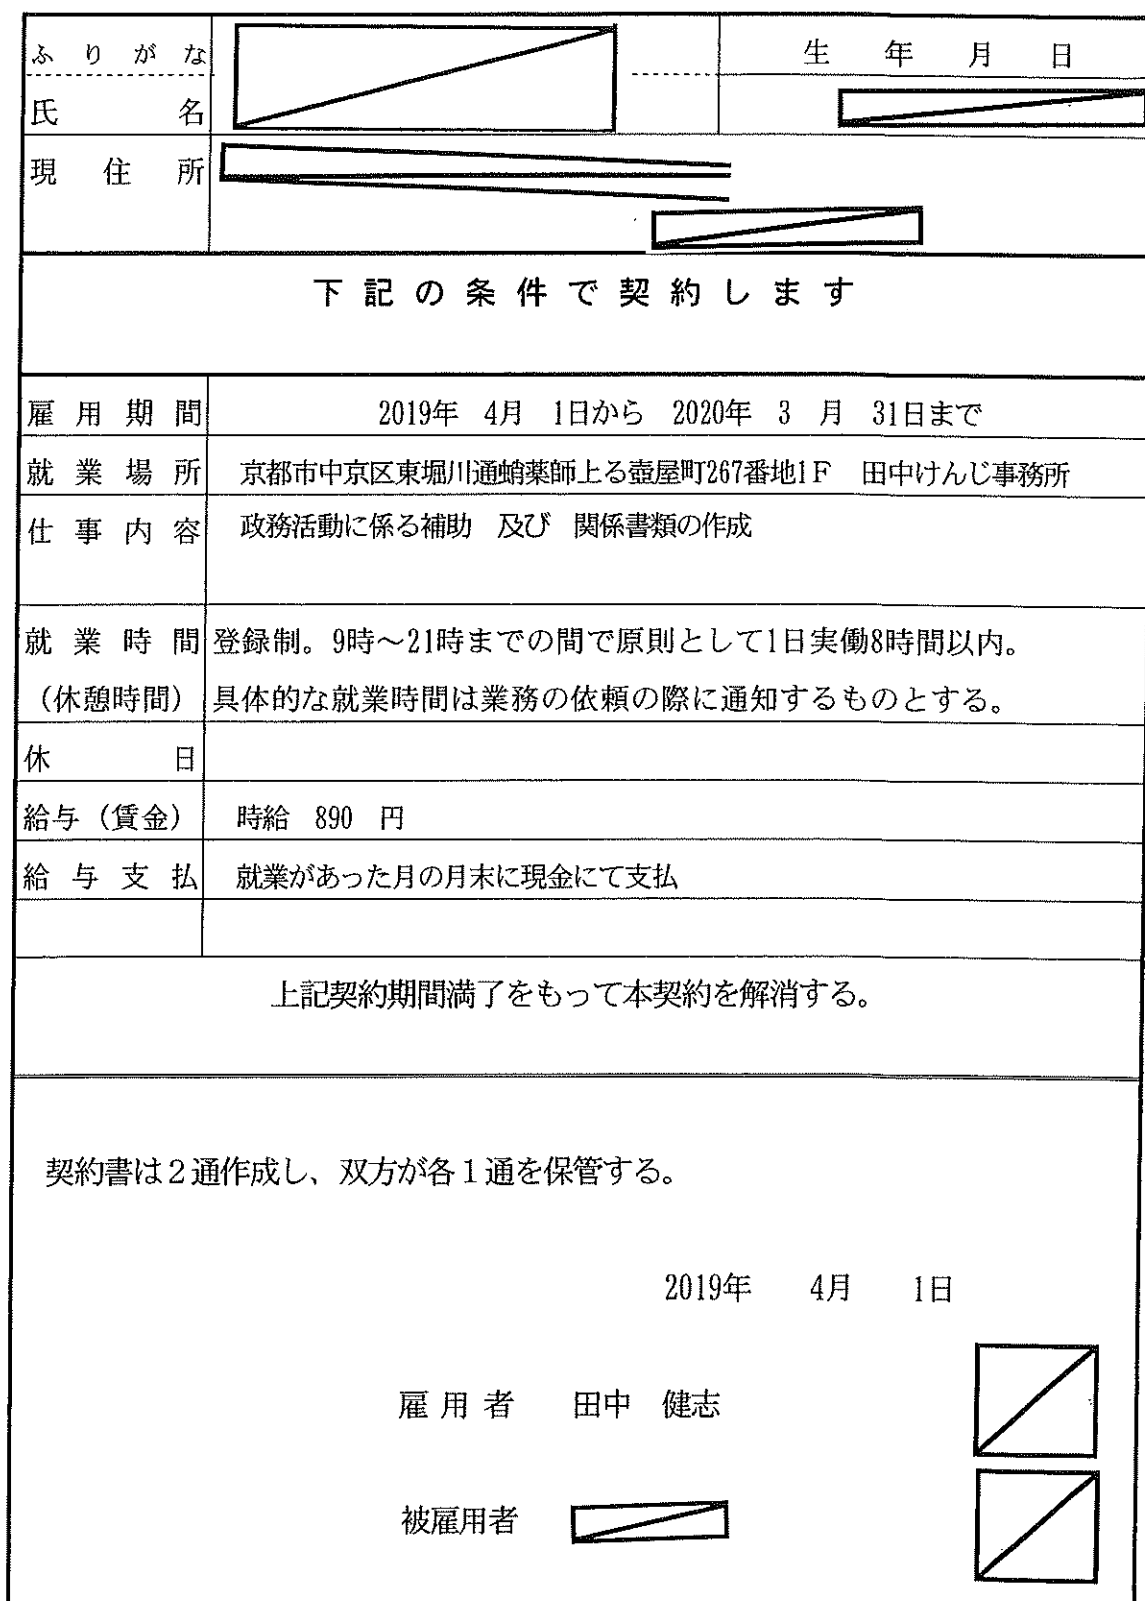 ふりがな
生年月日
氏名
現住所
下記の条件で契約します
雇用期間 2019年 4月 1日から 2020年 3月 31日まで
就業場所 京都市中京区東堀川通蛸薬師上る壺屋町267番地1F 田中けんじ事務所
仕事内容 政務活動に係る補助 及び 関係書類の作成
就業時間 登録制。9時～21時までの間で原則として1日実働8時間以内。
(休憩時間) 具体的な就業時間は業務の依頼の際に通知するものとする。
休日
給与(賃金) 時給 890 円
給与支払 就業があった月の月末に現金にて支払
上記契約期間満了をもって本契約を解消する。
契約書は2通作成し、双方が各1通を保管する。
2019年 4月 1日
雇用者 田中 健志
被雇用者